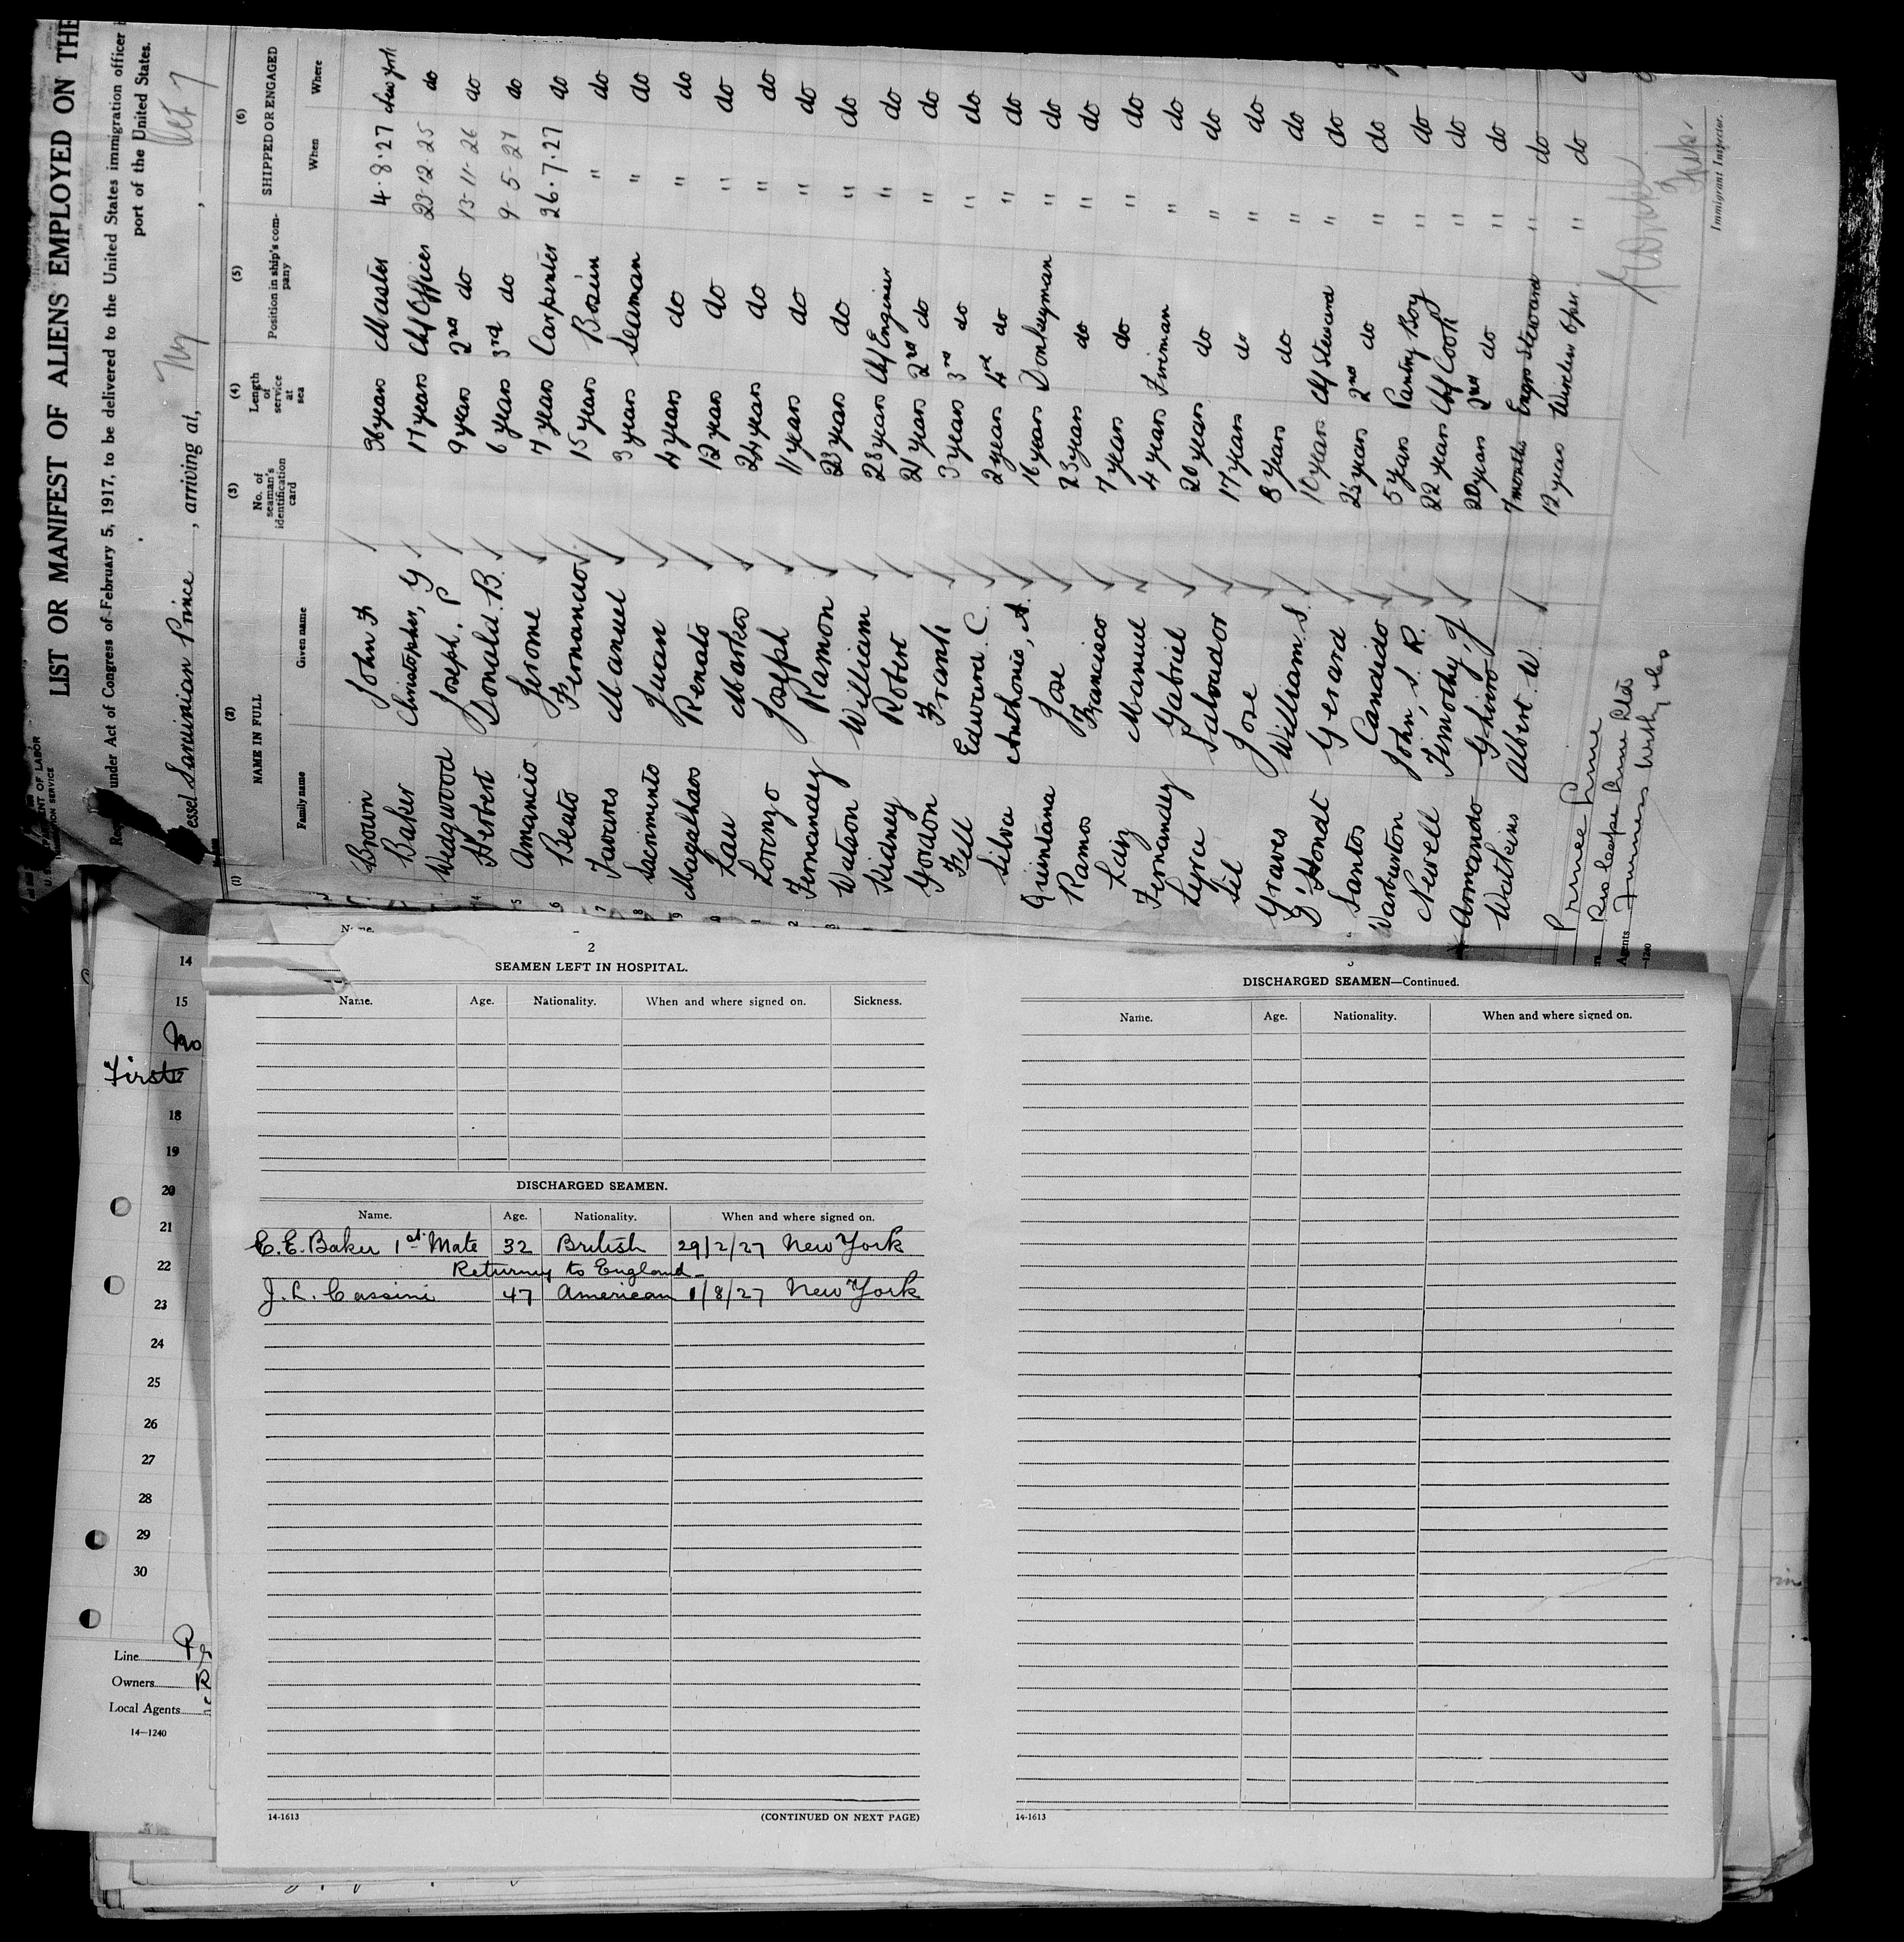 LIST OR MANIFEST OF ALIENS EMPLOYED ON THE
under Act of Congress of February 5, 1917, to be delivered to the United States immigration officer
port of the United States.
Vessel Sardinian Prince, arriving at, Ny, Oct 7
(1) (2) (3) (4) (5) (6)
NAME IN FULL No. of seaman's identification card Length of service at sea Position in ship's company SHIPPED OR ENGAGED
Family name Given name When Where
Brown John F 36 years Master 4.8.27 New York
Baker Christopher, G 17 years Chf Officer 23-12-25 do
Wedgwood Joseph. P 9 years 2nd do 13-11-26 do
Herbert Donald. B. 6 years 3rd do 9-5-27 do
Amancio Jerome 7 years Carpenter 26.7.27 do
Beato Fernando 15 years Bosun " do
Tavares Manuel 3 years Seaman " do
Sacrimento Juan 4 years do " do
Magalhaes Renato 12 years do " do
Lau Marko 24 years do " do
Lorenzo Joseph 11 years do " do
Fernandez Ramon 23 years do " do
Watson William 28 years Chf Engineer " do
Kidney Robert 21 years 2nd do " do
Gordon Frank 3 years 3rd do " do
Fell Edward. C. 2 years 4th do " do
Silva Anthonio, A. 16 years Donkeyman " do
Quintana Jose 23 years do " do
Ramos Francisco 7 years do " do
Laiz Manuel 4 years Fireman " do
Fernandez Gabriel 20 years do " do
Lyra Salvador 17 years do " do
Gil Jose 8 years do " do
Graves William. S. 10 years Chf Steward " do
D'Hondt Gerard years 2nd do " do
Santos Candido 5 years Pantry Boy " do
Warburton John, S. R. 22 years Chf Cook " do
Newell Timothy, J 20 years 2nd do " do
Armando Ghiro 7 months Engrs Steward " do
Watkins Albert. W. 12 years Wireless Oper. " do
Prince Line
Agents Furness Withy & Co
Immigrant Inspector.
—1240
14
15
First
18
19
20
21
22
23
24
25
26
27
28
29
30
Line
Owners
Local Agents
14—1240
2
SEAMEN LEFT IN HOSPITAL.
Name. Age. Nationality. When and where signed on. Sickness.
DISCHARGED SEAMEN.
Name. Age. Nationality. When and where signed on.
C. E. Baker 1st Mate 32 British 29/2/27 New York
Returning to England—
J. L. Cassini 47 American 1/8/27 New York
14-1613 (CONTINUED ON NEXT PAGE)
DISCHARGED SEAMEN—Continued.
Name. Age. Nationality. When and where signed on.
14-1613